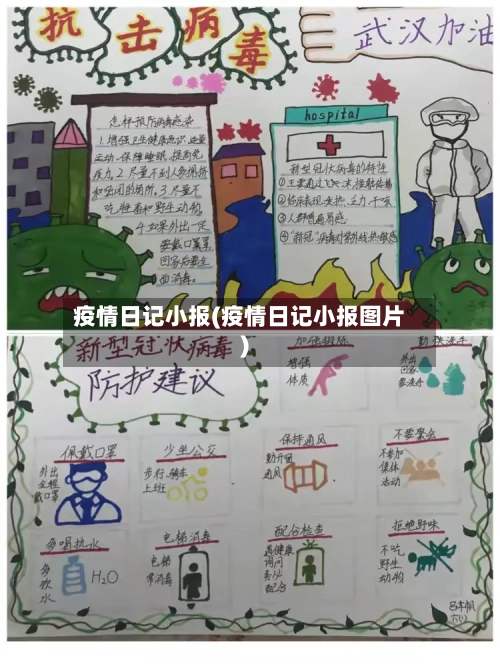 抗击病毒
武汉加油
怎样预防病毒感染
1.增强卫生健康意识,适量
运动、保障睡眠、提高免
疫力.2.尽量不到人多拥挤
和空闭的场所.3.尽量不
吃、生禽和野生动物.
4.如果外出一定
要戴口罩
回家后要全
面消毒。
hospital
新型冠状病毒的特性
③人群普遍易感
④"新冠"病毒对紫外线热敏感
疫情日记小报(疫情日记小报图片
)
新型冠状病毒
防护建议
加强锻炼
增强
体质
勤洗洗手
外出
回家
要洗手
佩戴口罩
外出
全程
戴口罩
少坐公交
步行、骑车
上班
保持通风
勤开窗
通风
不要聚会
不参加
集体
活动
多喝热水
多
饮
水
H₂O
电梯消毒
电梯
常消毒
配合检查
遇健康
询问
要认
配合
拒绝野味
不吃
野生
动物